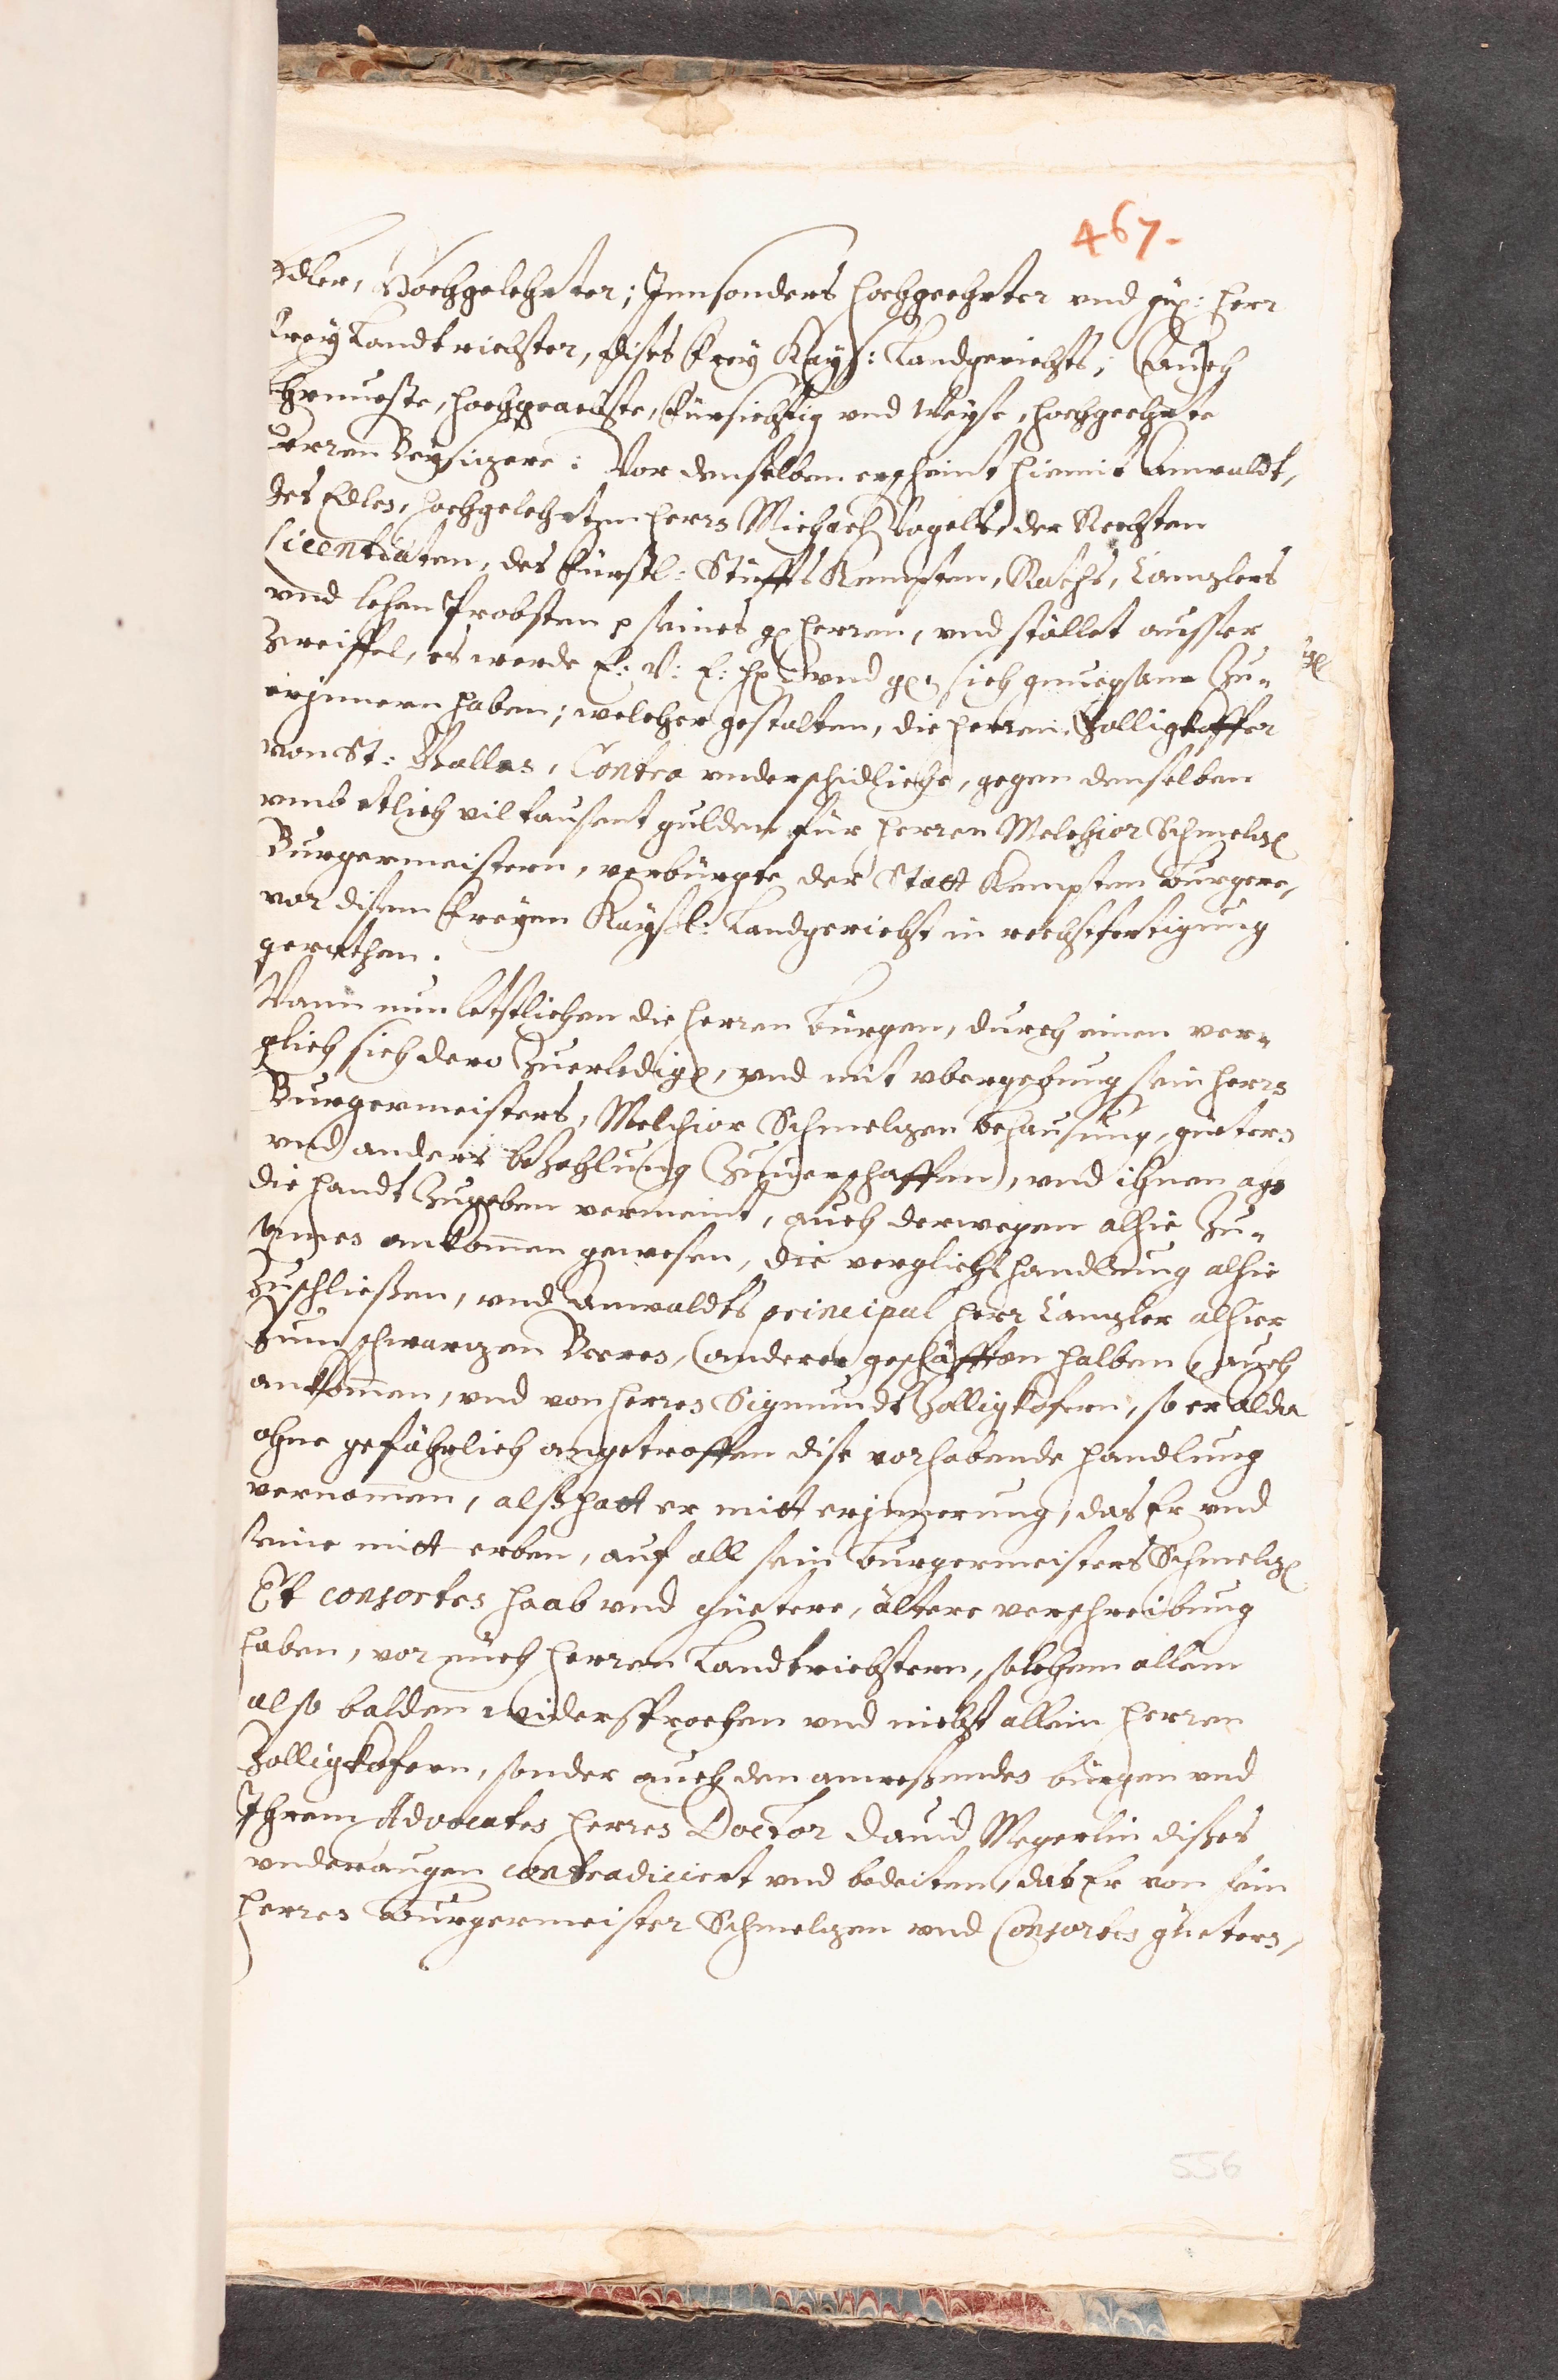 467.
Edler, Hochgelehrter; Innsonders hochgeehrter vnd gü: herr
Freÿ Landtrichter, dises Freÿ Kaÿs: Landgerichts; auch
Ehrnueste, hochgeachte, Fürsichtig vnd Weÿse, hochgeehrte
herren Beÿsizere: Vor denselben erscheint hiemit Anwaldt,
des Edlen, hochgelehrten herrn Michaeli Vogelts der Rechten
licentiaten, des Fürstl: Stüffts Kempten, Raths, Canzlers
vnd lehen Probsten p seines g herren, vnd stöllet ausser
Zweiffel, es werde E: V: E: h vnd g sich gnuegsam Zu-
erjnnern haben; welcher gestalten, die herren Zolligkoffer
von St: Gallen, Contra vnderschidliche, gegen denselben
vmb etlich vil tausent gulden für herren Melchior Schmelz
Burgermeistern, verbürgte der Statt Kempten burgere,
vor disem Freÿen Kaÿsl: Landgericht in rechtfertigung
gerathen.
Wann nun letstlichen die herren bürgen, durch einen ver-
glich sich dero Zuerledigen, vnd mit vbergebung sein herrn
Burgermeisters, Melchior Schmelzen behausung, güetern
vnd anders bezahlung Zuuerschaffen, vnd ihnen also
die handt Zugeben vermeint, auch derwegen alhie Zu-
 ankommen gewesen, die verglichshandlung alhie
Zuschließen, vnd Anwaldts principal herr Canzler alhier
Zum schwarzen Beeren, (anderer geschäfften halben) auch
ankommen, vnd von herren Sigmundt Zolligkofern, so er alda
ohne gefährlich angetroffen dise vorhabende handlung
vernommen, alß hatt er mitt erjnnerung, das Er vnd
seine mitt erben, auf all sein Burgermeisters Schmelz
Et consortes haab vnd güetere, ältere verschreibung
haben, vor euch herren Landtrichtern, solchem allem
also balden widersprochen vnd nicht allein herren
Zolligkofern, sonder auch den anweßenden bürgen vnd
Ihrem Advocaten herren Doctor Dauid Wegerlin dises
vnderaugen contradiciert vnd bedeiten, das Er von sein
herren Burgermeister Schmelzen vnd Consortes güetern,
556